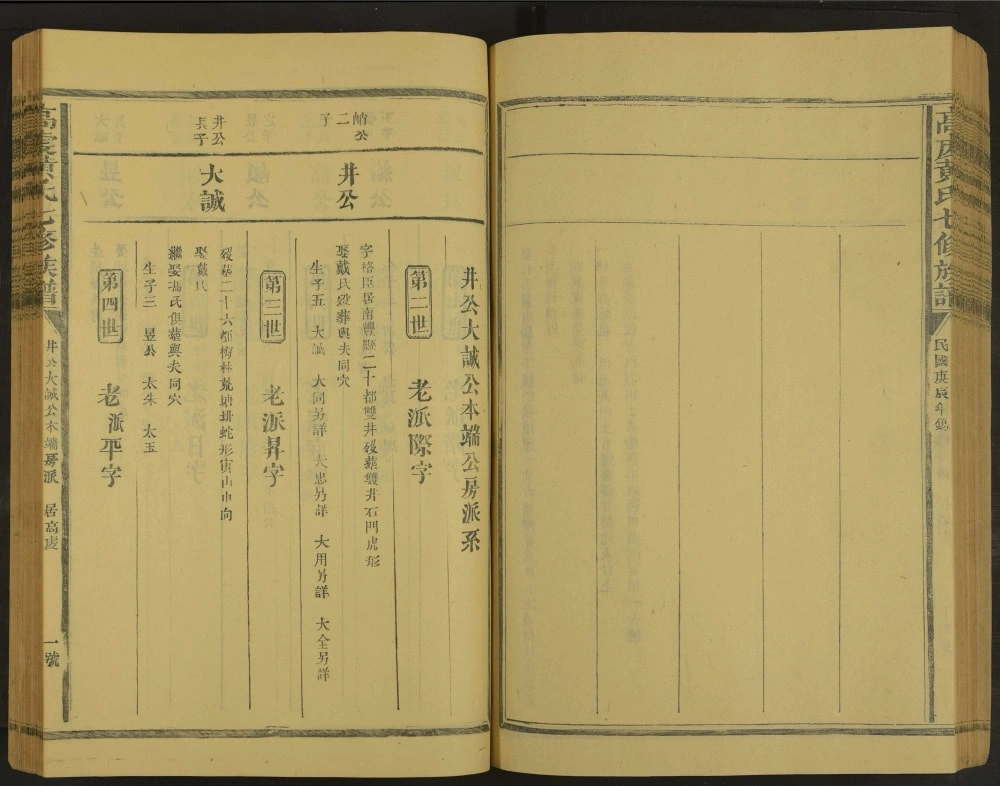 高虔黃氏七修族譜
民國庚辰年鐫
井公大誠公本端公房派系
第二世 老派際字
井公
二子
字格臣居南豐縣二十都雙井歿葬雙井石門虎形
娶戴氏歿葬與夫同穴
生子五 大誠 大同另詳 大忠另詳 大用另詳 大全另詳
第三世 老派昇字
井公長子
大誠
歿葬二十六都梅林
娶戴氏
繼娶馮氏俱葬與夫同穴
生子三 昱公 太朱 太玉
第四世 老派平字
高虔黃氏七修族譜
井公大誠公本端房派 居高虔
一號